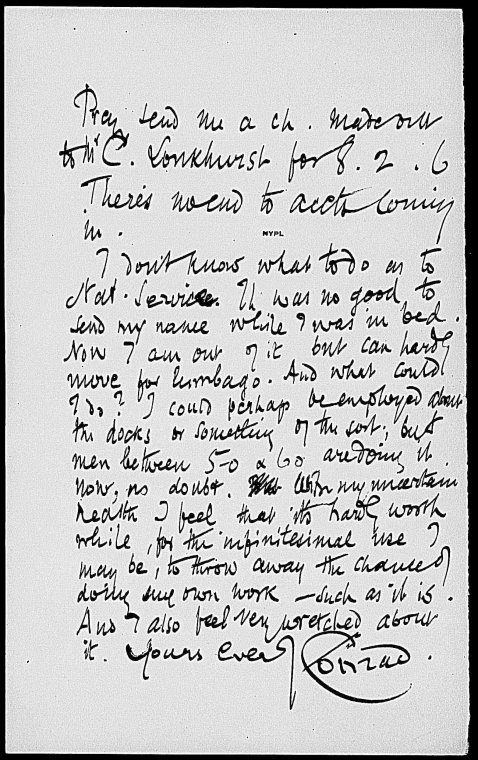 Pray send me a ch. made out
to Mr C. Lonkhurst for 8. 2. 6
There's no end to accts coming
in.
NYPL
I don't know what to do as to
Nat. Service. It was no good to
send my name while I was in bed.
Now I am out of it but can hardly
move for lumbago. And what could
I do? I could perhaps be employed about
the docks or something of the sort; but
men between 50 & 60 are doing it
now, no doubt. With my uncertain
health I feel that it's hardly worth
while, for the infinitesimal use I
may be, to throw away the chance of
doing my own work – such as it is.
And I also feel very wretched about
it. Yours ever J Conrad.